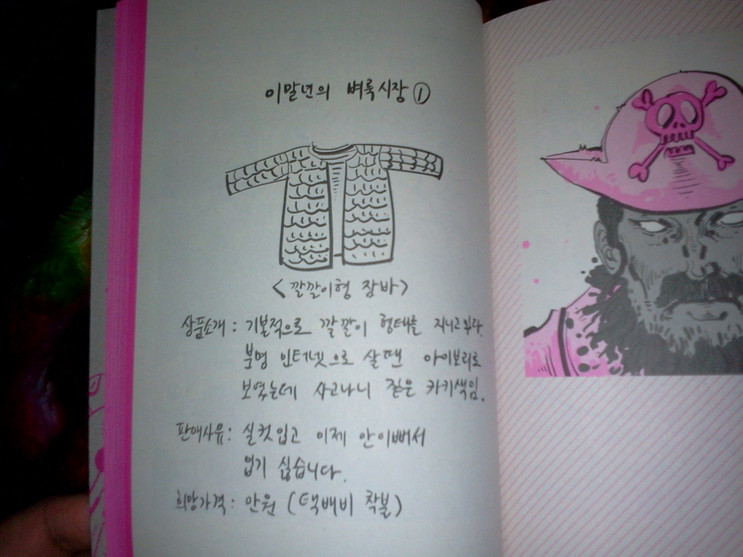 이말년의 벼룩시장 ①
<깔깔이형 잠바>
상품소개 : 기본적으로 깔깔이 형태를 지니고 있다.
분명 인터넷으로 살땐 아이보리로
보였는데 사고나니 짙은 카키색임.
판매사유 : 실컷입고 이제 안이뻐서
입기 싫습니다.
희망가격 : 만원 (택배비 착불)